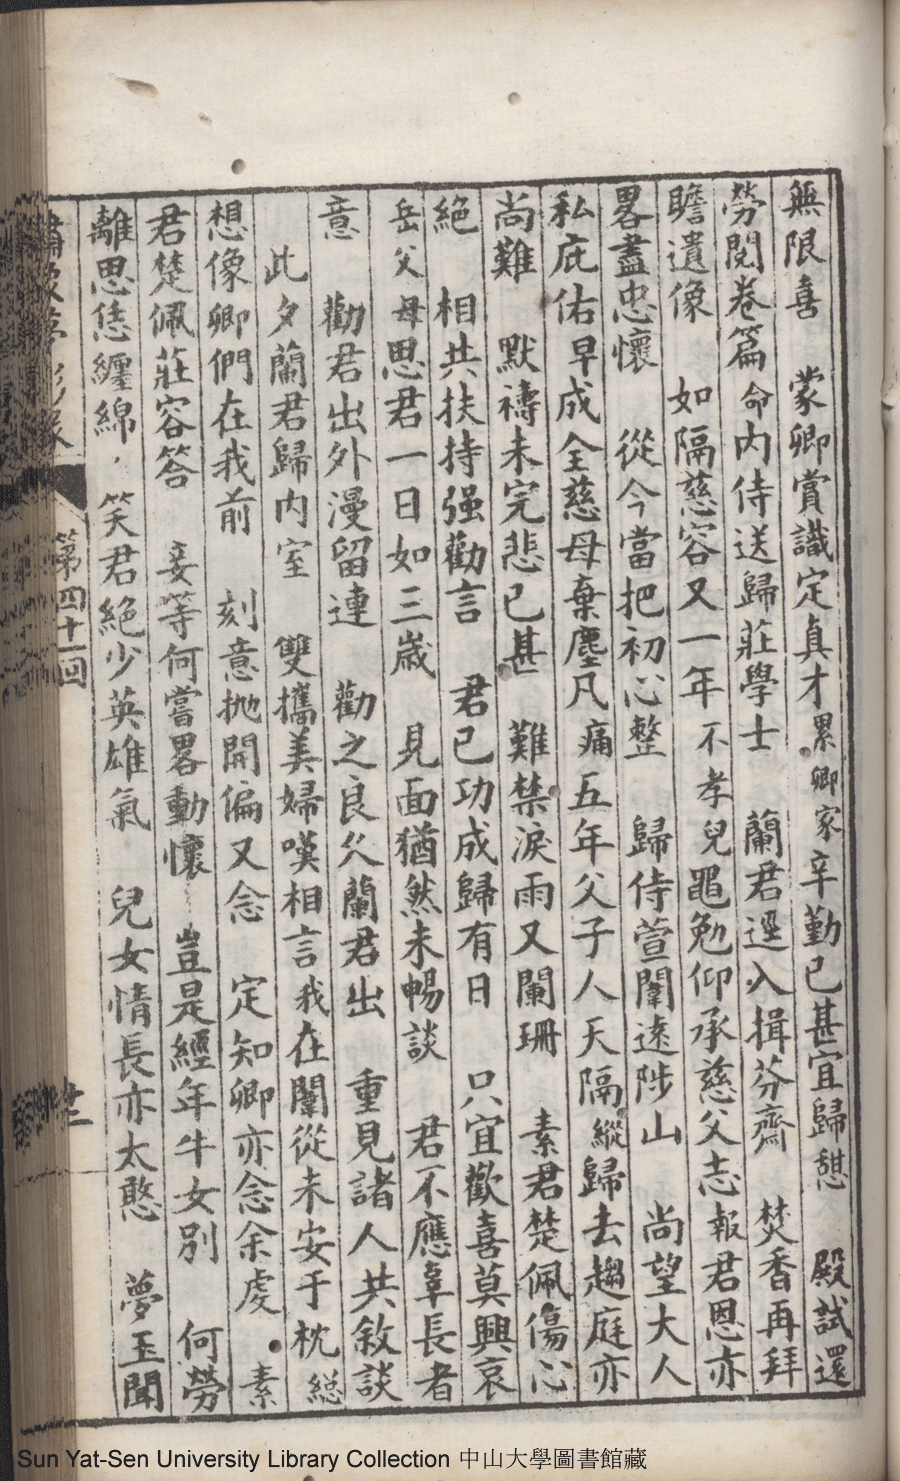 無限喜　蒙卿賞識定真才累卿家辛勤已甚宜歸憇　殿試還
勞閱卷篇命內侍送歸莊學士　蘭君逕入揖芬齋　焚香再拜
瞻遺像　如隔慈容又一年不孝兒黽勉仰承慈父志報君恩亦
畧盡忠懷　從今當把初心整　歸侍萱闈遠陟山　尚望大人
私庇佑早成全慈母棄塵凡痛五年父子人天隔縱歸去趨庭亦
尚難　默禱未完悲已甚　難禁淚雨又闌珊　素君楚佩傷心
絕　相共扶持强勸言　君已功成歸有日　只宜歡喜莫興哀
岳父母思君一日如三歲　見面猶然未暢談　君不應辜長者
意　勸君出外漫留連　勸之良久蘭君出　重見諸人共敘談
此夕蘭君歸內室　雙攜美婦嘆相言我在闈從未安于枕縂
想像卿們在我前　刻意抛開偏又念　定知卿亦念余虔　素
君楚佩莊容答　妾等何嘗畧動懷　豈是經年牛女別　何勞
離思恁纏綿　笑君絕少英雄氣　兒女情長亦太憨　夢玉聞
第四十一回